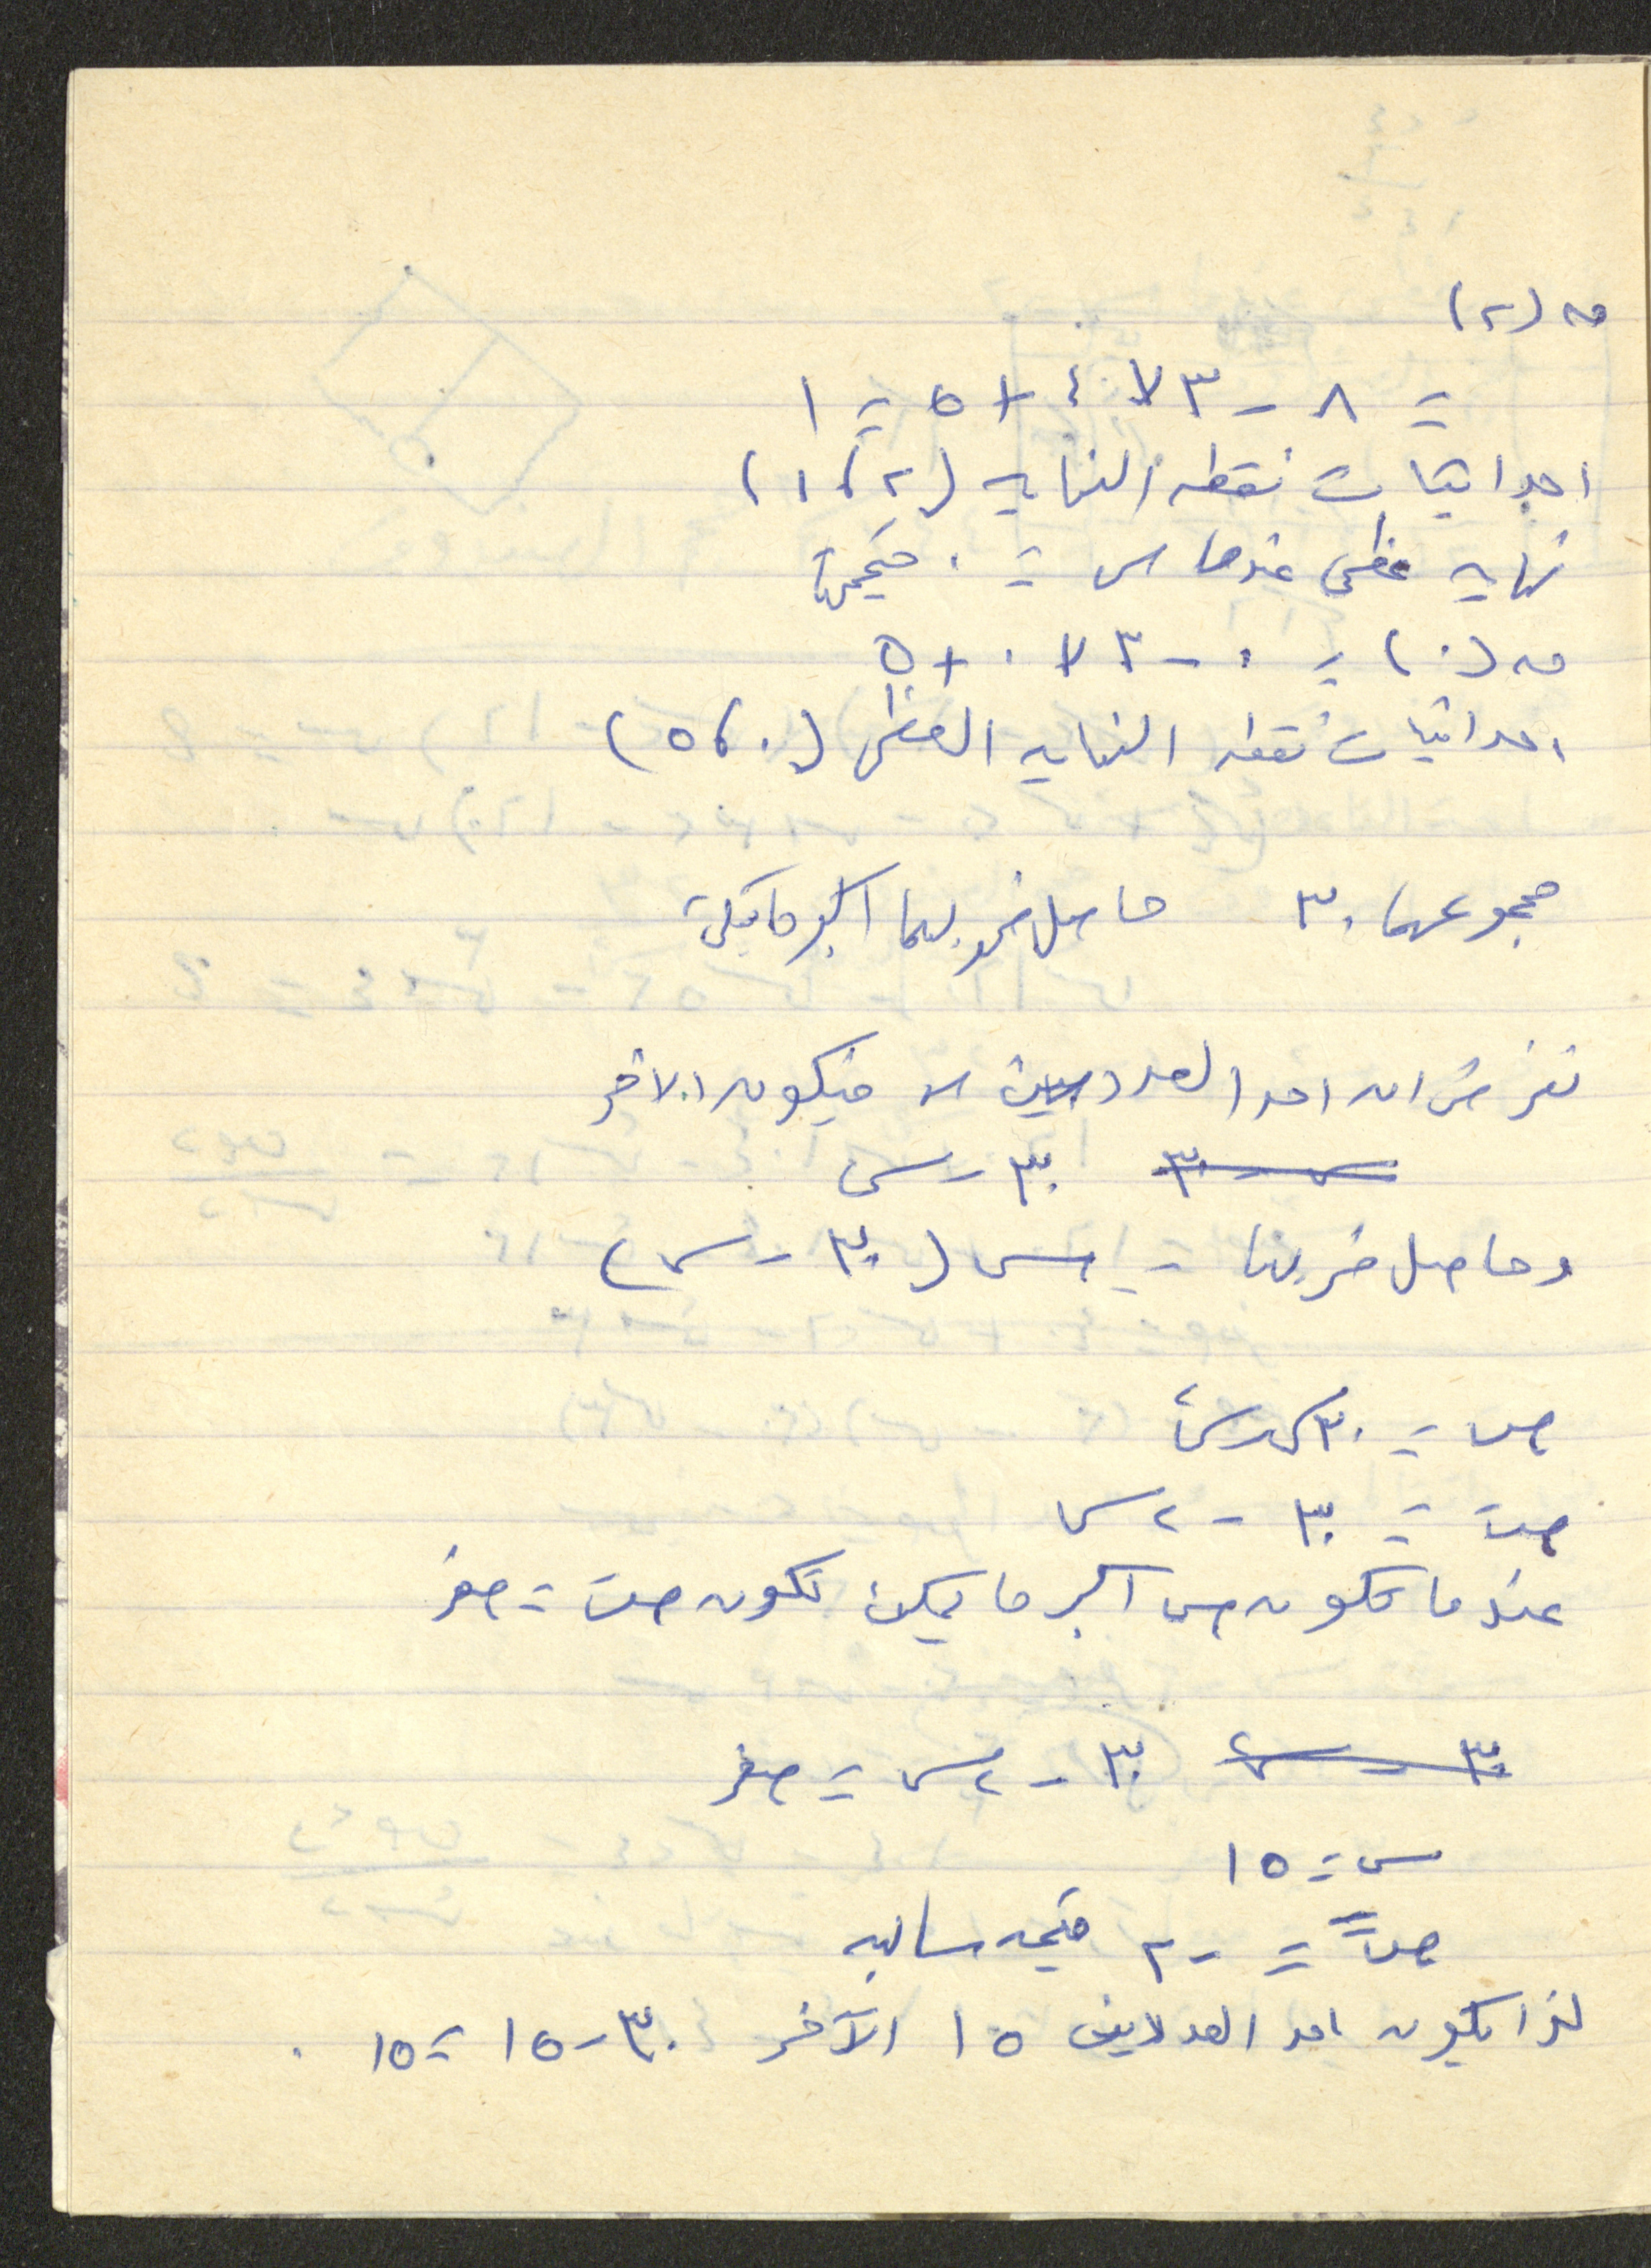 ق (٢)
= ٨ - ٣ × ٤ + ٥ = ١
احداثيات نقطه النهايه (٢ ، ١)
نهايه عظمى عندما س = ٠ قيمتها
ق (٠) = ٠ - ٣ × ٠ + ٥
احداثيات نقطه النهايه العظمى (٠ ، ٥)
مجموعهما ٣٠ حاصل ضربهما اكبر ما يمكن
نفرض ان احد العددين س فيكون الاخر
٣٠ - س
وحاصل ضربهما = س (٣٠ - س)
ص = ٣٠س - س٢
صَ = ٣٠ - ٢س
عندما تكون ص اكبر ما يمكن تكون صَ = صفر
٣٠ - ٢س = صفر
س = ١٥
صً = - ٢ قيمه سالبه
لذا يكون احد العددين ١٥ الآخر ٣٠ - ١٥ = ١٥ .